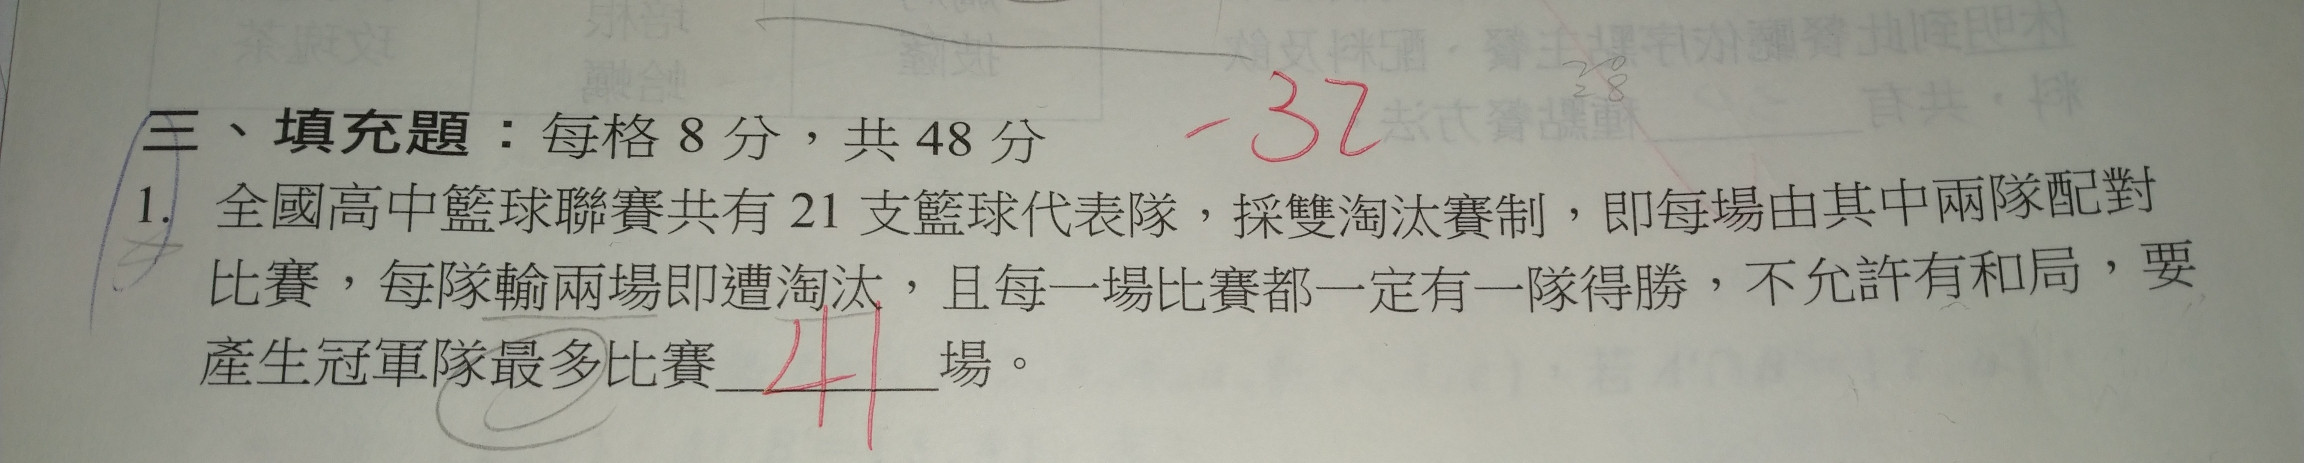 28
28
三、填充題：每格 8 分，共 48 分 -32
1. 全國高中籃球聯賽共有 21 支籃球代表隊，採雙淘汰賽制，即每場由其中兩隊配對
比賽，每隊輸兩場即遭淘汰，且每一場比賽都一定有一隊得勝，不允許有和局，要
產生冠軍隊最多比賽 41 場。